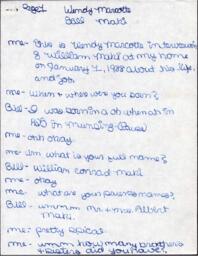 Page 1 Wendy Marcotte
Bill Maki
me- This is Wendy Marcotte interviewing
William Maki at my home
on January 1, 1988 about his life
and job.
me- When + where were you born?
Bill- I was born in a
in Munising
me- ohh okay
me- Um what is your full name?
Bill- William Conrad Maki
me- okay
me- what are your parents names?
Bill- ummm Mr. + Mrs. Albert
Maki.
me- pretty typical
me- umm, how many brothers
+ sisters did you have?